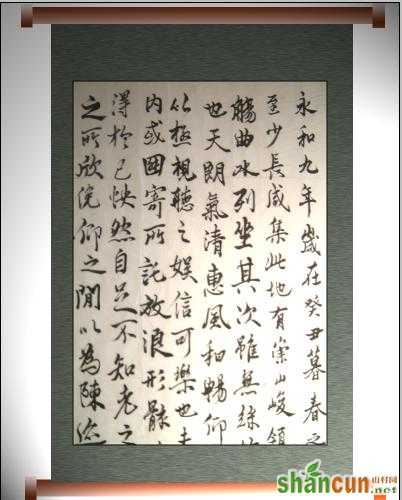 永和九年歲在癸丑暮春之
至少長咸集此地有崇山峻領
觴曲水列坐其次雖無絲竹
也天朗氣清惠風和暢仰
以極視聽之娛信可樂也夫
內或因寄所託放浪形骸
得於己快然自足不知老之
之所欣俛仰之閒以為陳迹
shancun 山村网
.net